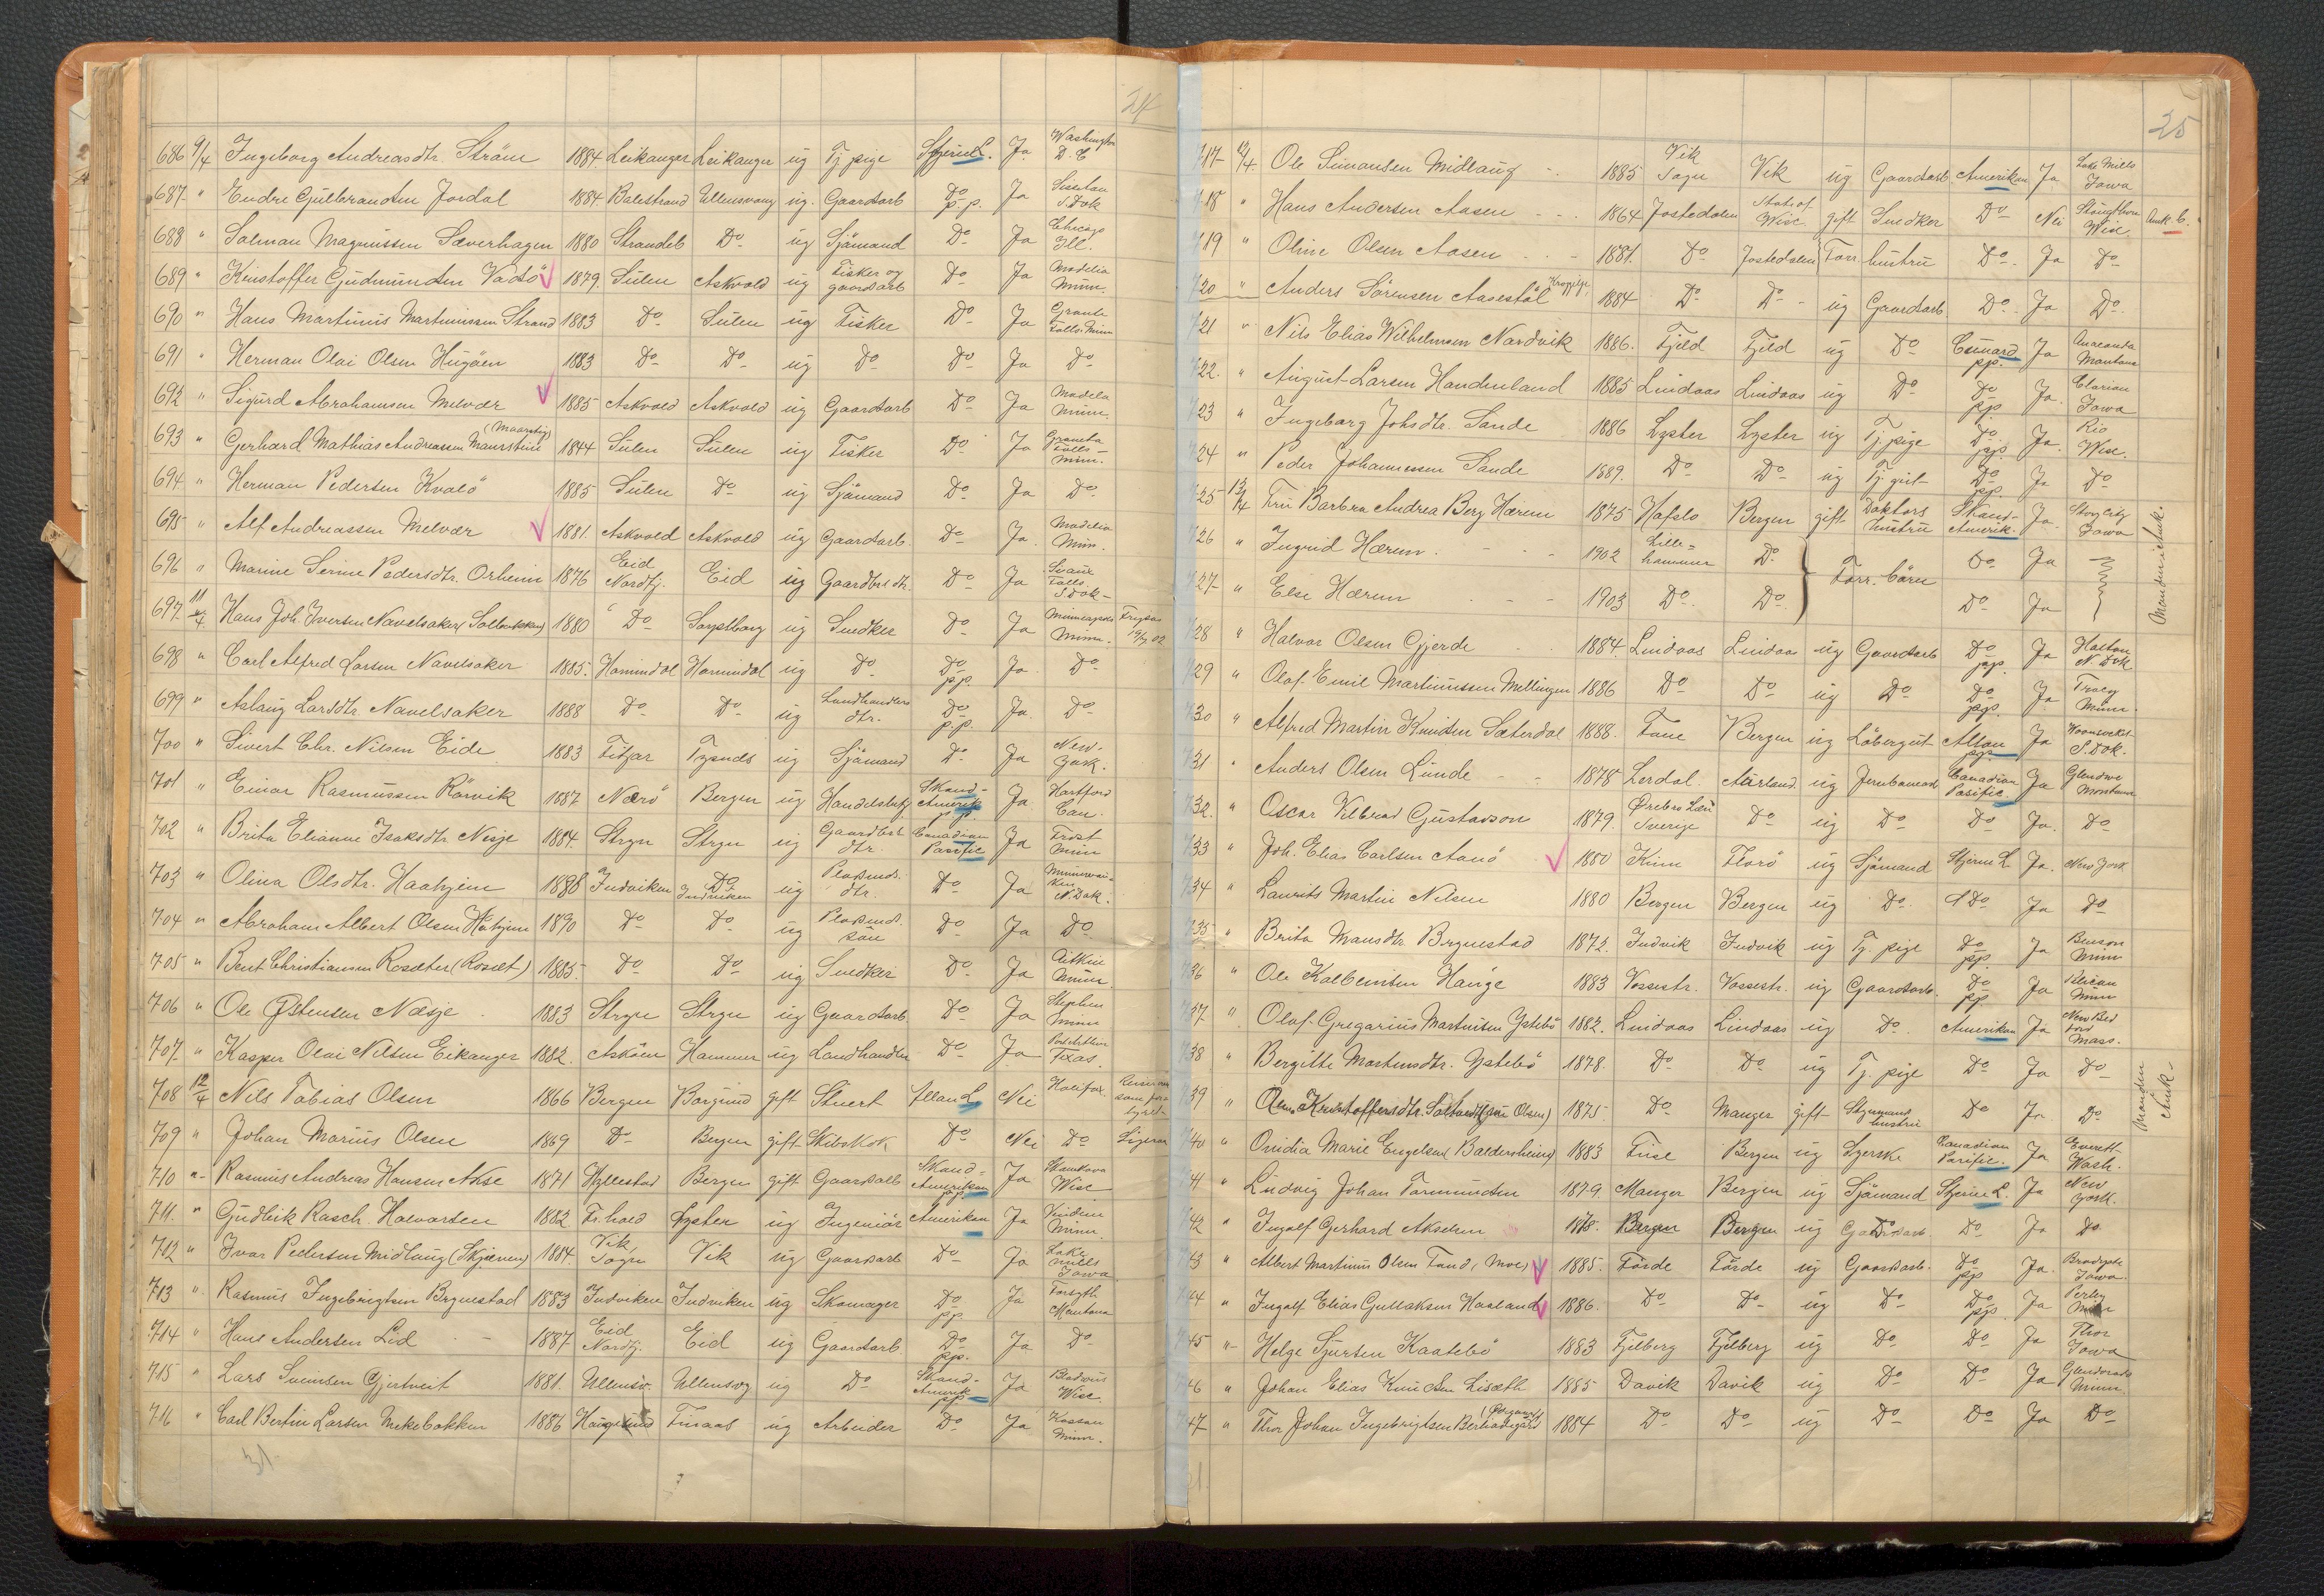 24
686 9/4 Ingeborg Andreasdtr. Ström 1884 Leikanger Leikanger ug Tj. pige Stjerne L. Ja Washington D. C
687 " Endre Gulbrandsen Jordal 1884 Balestrand Ullensvang ug. Gaardsarb Do p.p. Ja Sisseton S. Dak
688 " Salman Magnussen Sæverhagen 1880 Strandeb Do ug Sjömand Do Ja Chicago Ill.
689 " Kristoffer Gudmundsen Vadsö 1879. Sulen Askvold ug Fisker og gaardsarb Do Ja Madelia Minn.
690 " Hans Martinus Martinussen Strand 1883 Do Sulen ug Fisker Do Ja Granite Falls Minn
691 " Herman Olai Olsen Hugöen 1883 Do Do ug Do Do Ja Do
692 " Sigurd Abrahamsen Melvær 1885 Askvold Askvold ug Gaardsarb Do Ja Madela Minn.
693 " Gerhard Mathias Andreassen 1844 Sulen Sulen ug Fisker Do Ja Granite Falls Minn.
694. " Herman Pedersen Kvalö 1885 Sulen Do ug Sjömand Do Ja Do
695 " Alf Andreassen Melvær 1881. Askvold Askvold ug Gaardsarb. Do Ja Madelia Min.
696 " Marine Serine Pedersdtr. Orheim 1876 Eid Nordfj. Eid ug Gaardbr. dtr. Do Ja Falls S. Dak
697 11/4 Hans Joh. Iversen Navelsaker 1880 Do Sarpsborg ug Snedker Do Ja Minneapolis Minn.
698 " Carl Alfred Larsen Navelsaker 1885. Hornindal Hornindal ug Do Do pp. Ja Do
699 " Aslaug Larsdtr. Navelsaker 1888 Do Do ug Landhandlers dtr. Do p.p. Ja Do
700 " Sivert Chr. Nilsen Eide 1883 Fitjar Tysnes ug Sjömand Do Ja New-York.
701 " Einar Rasmussen Rörvik 1887 Nærö Bergen ug Skand-Amerik pp Ja Hartford Can.
702 " Brita Elianne Isaksdtr Nesje 1884. Stryn Stryn ug Gaardbr. dtr. Canadian Pacific Ja Frost Minn
703 " Olina Olsdtr. Haahjem 1888 Indviken Do Indviken ug Pladsmds. dtr. Do Ja N. Dak.
704 " Abraham Albert Olsen Håhjem 1890 Do Do ug Pladsmds. sön Do Ja Do
705 " Bent Christiansen Rosæter (Rosæt) 1885. Do Do ug Snedker Do Ja Aitkin Minn.
706 " Ole Østensen Næsje 1883 Stryn Stryn ug Gaardsarb Do Ja Stephen Minn
707. " Kasper Olai Nilsen Eikanger 1882. Asköen Hammer ug Landhandler Do Ja Texas
708 12/4 Nils Tobias Olsen 1866 Bergen Borgund gift Stuert Allan L. Nei Halifax
709 " Johan Marius Olsen 1869 Do Bergen gift Skibskok Do Nei Do
710 " Rasmus Andreas Hansen Akse 1871 Hyllestad Bergen gift Gaardsarb Skand-Amerikan pp Ja Wisc
711. " Gudleik Rasch. Halvorsen 1882 Fr.hald Lyster ug Ingeniör Amerikan Ja Minn.
712 " Ivar Pedersen Midlang (Skjærven) 1884. Vik Sogn Vik ug Gaardsarb Do Ja Lake Mills Iowa
713 " Rasmus Ingebrigtsen Brynestad 1883 Indviken Indviken ug Skomager Do pp Ja Forsyth Montana
714 " Hans Andersen Lid 1887 Eid Nordfj. Eid ug Gaardsarb. Do pp. Ja Do
715 " Lars Svensen Gjertveit 1881. Ullensv. Ullensvg ug Do Skand-Amerik pp Ja Wisc.
716 " Carl Bertin Larsen Mekebakken 1886 Haugesund Finaas ug Arbeider Do Ja Kasson Minn.
31
25
717- 12/4. Ole Simonsen Midlang 1885 Vik Sogn Vik ug Gaardsarb. Amerikan Ja Lake Mills Iowa
718 " Hans Andersen Aasen 1864 Jostedalen Wisc gift Snedker Do Nei Stoughton Wisc
719 " Oline Olsen Aasen 1881. Do Jostedalen Forr. hustru Do. Ja Do
720 " Anders Sörensen Aasestöl 1884 Do Do ug Gaardsarb. Do. Ja Do.
721 " Nils Elias Wilhelmsen Nordvik 1886. Fjeld Fjeld ug Do Cunard pp. Ja Anaconda Montana
722. " August Larsen Hundenland 1885 Lindaas Lindaas ug Do Do pp Ja. Clarion Iowa
723 " Ingeborg Johsdtr. Sande 1886 Lyster Lyster ug Tj. pige Do pp. Ja. Rio Wisc.
724 " Peder Johannessen Sande 1889. Do Do ug Tj. gut Do pp. Ja Do
725 13/4 Fru Barbra Andrea Berg Hærem 1875 Hafslo Bergen gift Doktors hustru Skand-Amerik. Ja. Story City Iowa
726 " Ingrid Hærem 1902 Lillehammer Do Forr. börn Do Ja
727- " Else Hærem 1903 Do. Do. Do Ja
728 " Halvor Olsen Gjerde 1884. Lindaas Lindaas ug Gaardsarb Do pp. Ja Hatton N. Dak
729 " Olaf Emil Martinussen Mellingen 1886 Do Do ug Do Do pp. Ja Tracy Minn.
730 " Alfred Martin Knudsen Sæterdal 1888. Fane Bergen ug Löbergut Allan pp. Ja Woonsocket S. Dak.
731 " Anders Olsen Lunde 1878 Lerdal Aurland. ug Jernbanearb Canadian Pacific. Ja Glendive Montana
732. " Oscar Gustavson 1879. Ørebro Læn Sverige Do ug Do Do Ja. Do
733 " Joh. Elias Carlsen Aanö 1880 Kinn Florö ug Sjömand Stjerne L. Ja. New York
734 " Laurits Martin Nilsen 1880 Bergen Bergen ug Do. Do Ja Do
735 " Brita Mansdtr Brynestad 1872. Indvik Indvik ug Tj. pige Do pp. Ja Benson Minn
736 " Ole Kolbeinsen Hauge 1883 Vossestr. Vossestr. ug Gaardsarb. Do pp. Ja Minn
737. " Olaf Gregarius Martinsen Ystebö 1882. Lindaas Lindaas ug Do Amerikan Ja New Bedford Mass.
738 " Bergitte Martensdtr. Ystebö 1878. Do Do ug Tj. pige Do Ja Do
739 " Kristoffersdtr. 1875 Do Manger gift Styrmands hustru Do Ja. Do
740 " Ovidia Marie Engelsen (Baldersheim) 1883 Fuse Bergen ug Syerske Canadian Pacific. Ja Everett Wash.
741 " Ludvig Johan Tormundsen 1879. Manger Bergen ug Sjömand Stjerne L. Ja New York.
742 " Ingolf Gerhard Akselsen 1878. Bergen Bergen ug Do Ja Do
743 " Albert Martinus Olsen (Moe) 1885. Förde Förde ug Gaardsarb. Do pp Ja. Iowa.
744 " Ingolf Elias Gullaksen Haaland 1886. Do Do ug Do Do pp. Ja Perley Minn
745 " Helge Sjursen Kaatebö 1883 Fjelberg Fjelberg ug Do Do Ja Thor Iowa
746 " Johan Elias Knudsen Lisæth 1885 Davik Davik ug Do Do Ja Minn.
747 " Thor Johan Ingebrigtsen 1884 Do Do ug Do Do Ja Do